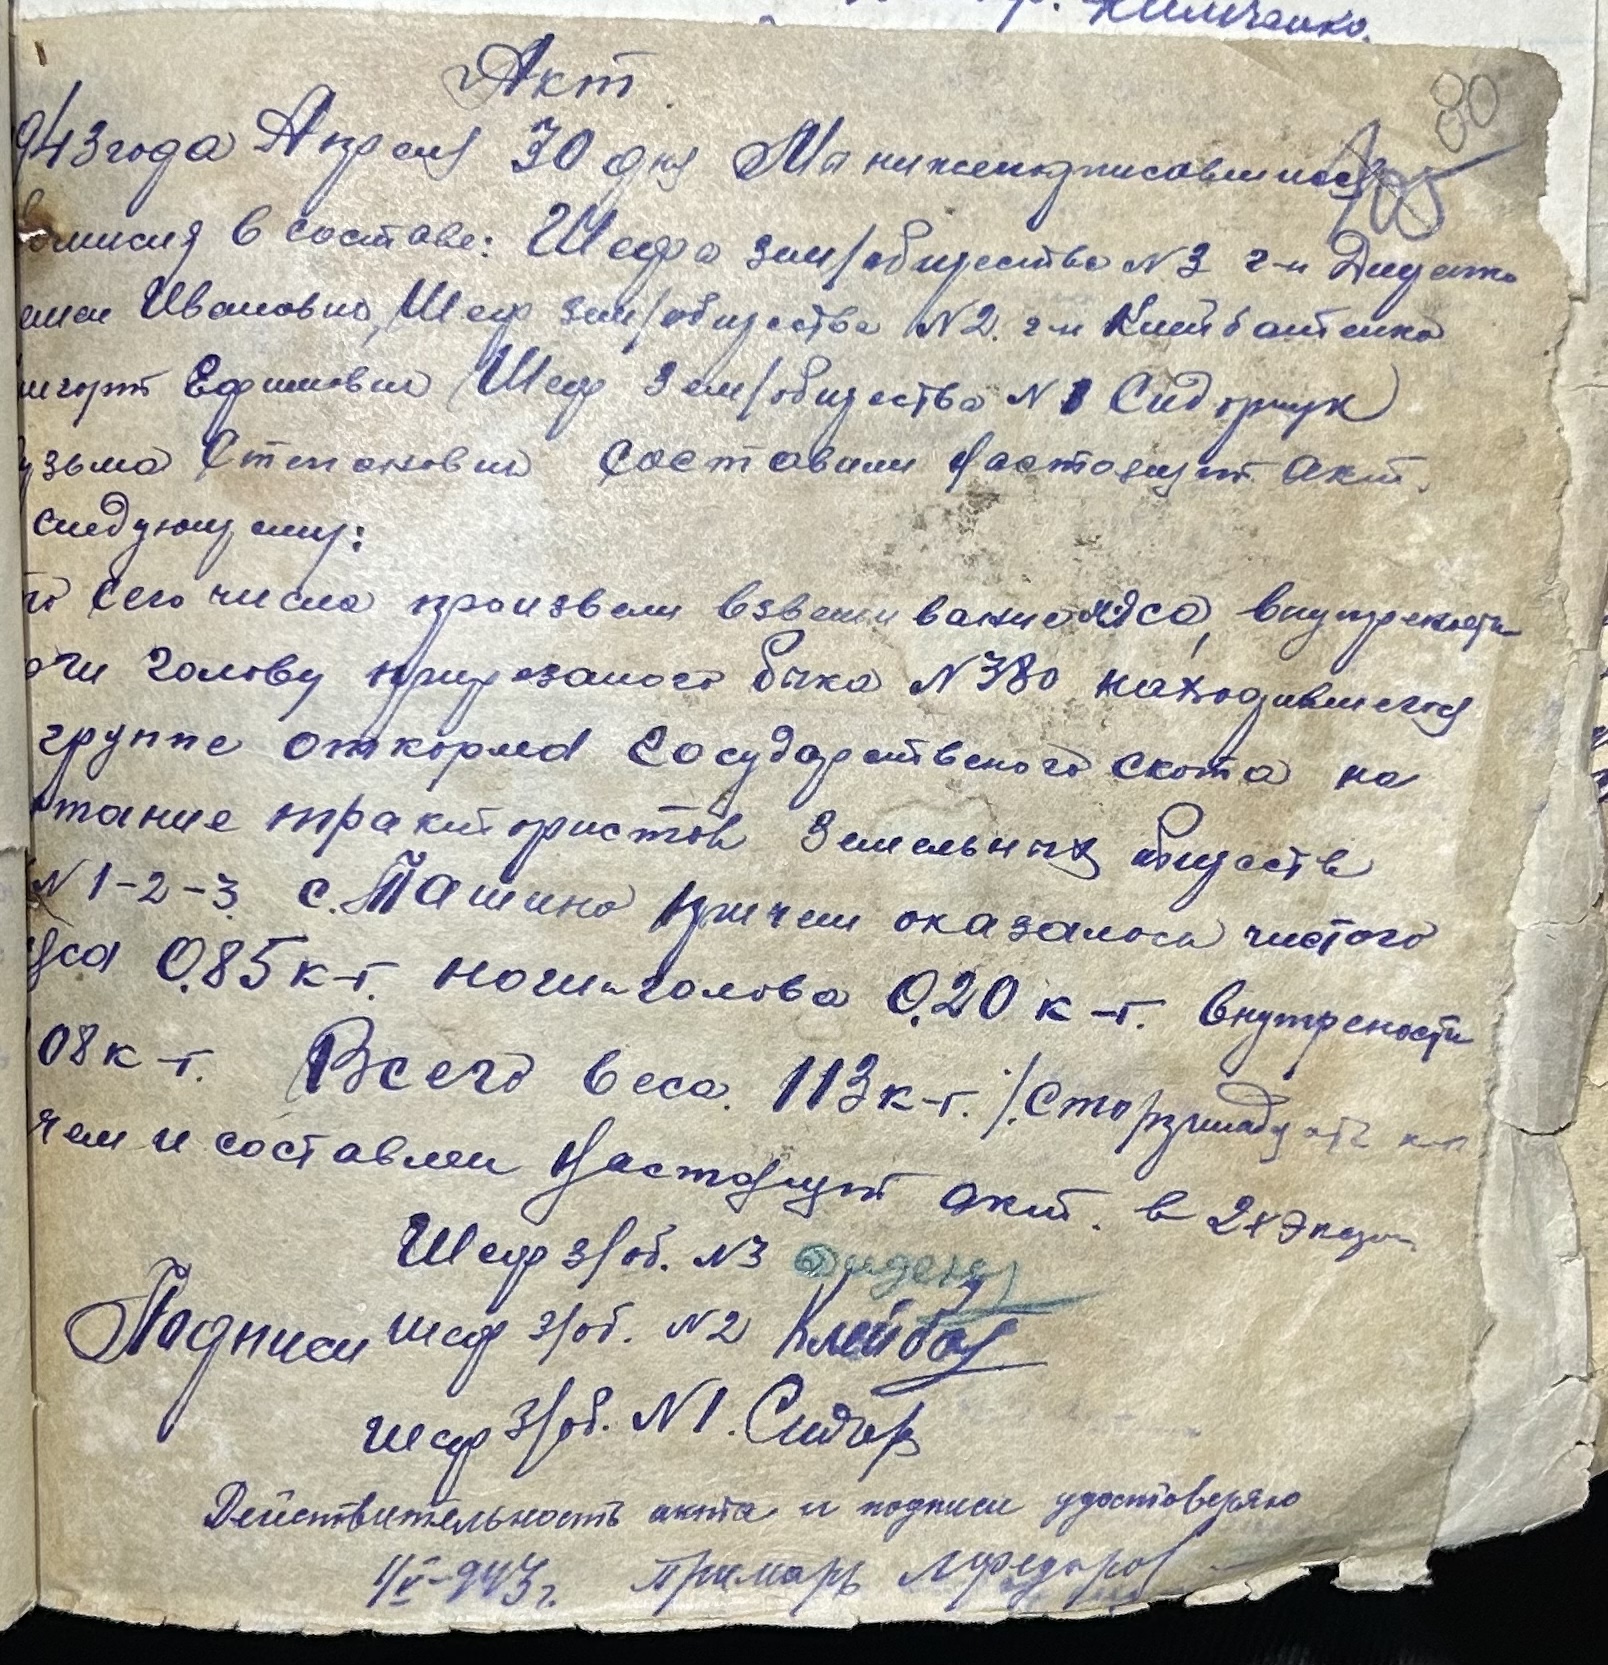 Акт.
80
943 года Апреля 30 дня Мы нижеподписавшиеся
комисия в составе: Шефа зем/общества N3 г-н
Иванович, Шеф зем/общества N2. г-н
Ефимович Шеф Зем/общества N1 Сидорчук
узьма Степанович составили настоящий акт.
следующему:
то сего числа произвели взвешивание мяса, внутрености
голову прирезаного бычка N380 находившегося
группе откорма Государственого скота на
питание трактористов Земельных обществ
N 1-2-3. с. причем оказалось чистого
яса 0,85 к-г. ноги и голова 0,20 к-г. внутрености
08 к-г. Всего веса. 113 к-г. /.Сто тринадцать к-г
чем и составлен настоящий акт. в 2х экзем
Шеф з/об. N3
Подписи шеф з/об. N2 Клейбо
шеф з/об. N1. Сидор
Действительность акта и подписи удостоверяю
1/V-943 г. Примарь